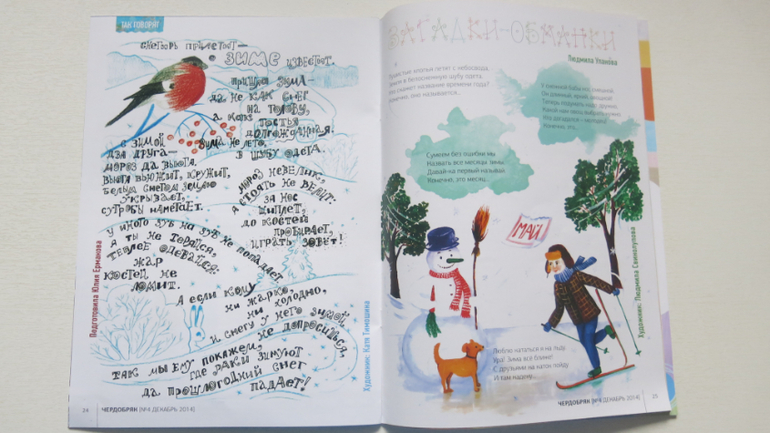 ТАК ГОВОРЯТ
СНЕГИРЬ ПРИЛЕТЕЛ —
ЗИМЕ
ИЗВЕСТЕН.
ПРИШЛА ЗИМА —
ДА НЕ КАК СНЕГ
НА ГОЛОВУ,
А КАК ГОСТЬЯ
ДОЛГОЖДАННАЯ.
ЗИМА НЕ ЛЕТО,
В ШУБУ ОДЕТА.
С ЗИМОЙ
ДВА ДРУГА —
МОРОЗ ДА ВЬЮГА.
ВЬЮГА ВЬЮЖИТ, КРУЖИТ,
БЕЛЫМ СНЕГОМ ЗЕМЛЮ
УКРЫВАЕТ,
СУГРОБЫ НАМЕТАЕТ.
МОРОЗ НЕВЕЛИК,
А СТОЯТЬ НЕ ВЕЛИТ:
ЗА НОС
ЩИПЛЕТ,
ДО КОСТЕЙ
ПРОБИРАЕТ,
ИГРАТЬ ЗОВЁТ!
У ИНОГО ЗУБ НА ЗУБ НЕ ПОПАДАЕТ
А ТЫ НЕ ТЕРЯЙСЯ,
ТЕПЛЕЕ ОДЕВАЙСЯ:
ЖАР
КОСТЕЙ НЕ
ЛОМИТ.
А ЕСЛИ КОМУ
НИ ЖАРКО,
НИ ХОЛОДНО,
И СНЕГУ У НЕГО ЗИМОЙ
НЕ ДОПРОСИШЬСЯ,
ТАК МЫ ЕМУ ПОКАЖЕМ,
ГДЕ РАКИ ЗИМУЮТ
ДА ПРОШЛОГОДНИЙ СНЕГ
ПАДАЕТ!
Подготовила Юлия Ермакова
Художник: Катя Тимошина
24
ЧЕРДОБРЯК (№4 ДЕКАБРЬ 2014)
ЗАГАДКИ-ОБМАНКИ
Людмила Уланова
Пушистые хлопья летят с небосвода,
Земля в белоснежную шубу одета.
Кто скажет название времени года?
Конечно, оно называется...
Теперь подумать надо дружно,
Конечно, это...
Сумеем без ошибки мы
Назвать все месяцы зимы.
Давай-ка первый называй.
Конечно, это месяц...
МАЙ
Люблю кататься я на льду.
Ура! Зима все ближе!
С друзьями на каток пойду
И там надену...
Художник: Людмила
ЧЕРДОБРЯК (№4 ДЕКАБРЬ 2014)
25